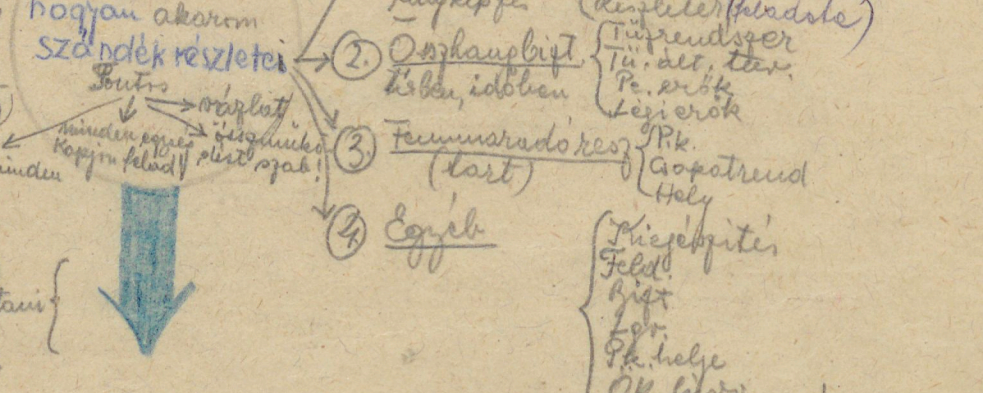 hogyan akarom
szándék részletei
Fontos
vázlat
minden egyes
kapjon felad!
összműkö-
dést szab!
minden
2. Összhangbizt.
térben, időben
Tűzrendszer
Tü. ált. terv.
Pc. erők
Légierők
3. Fennmaradó rész
(tart)
Pk.
Csopotrend
Hely
4. Egyéb
Kiegészítés
Feld.
Bizt.
Pk. helye